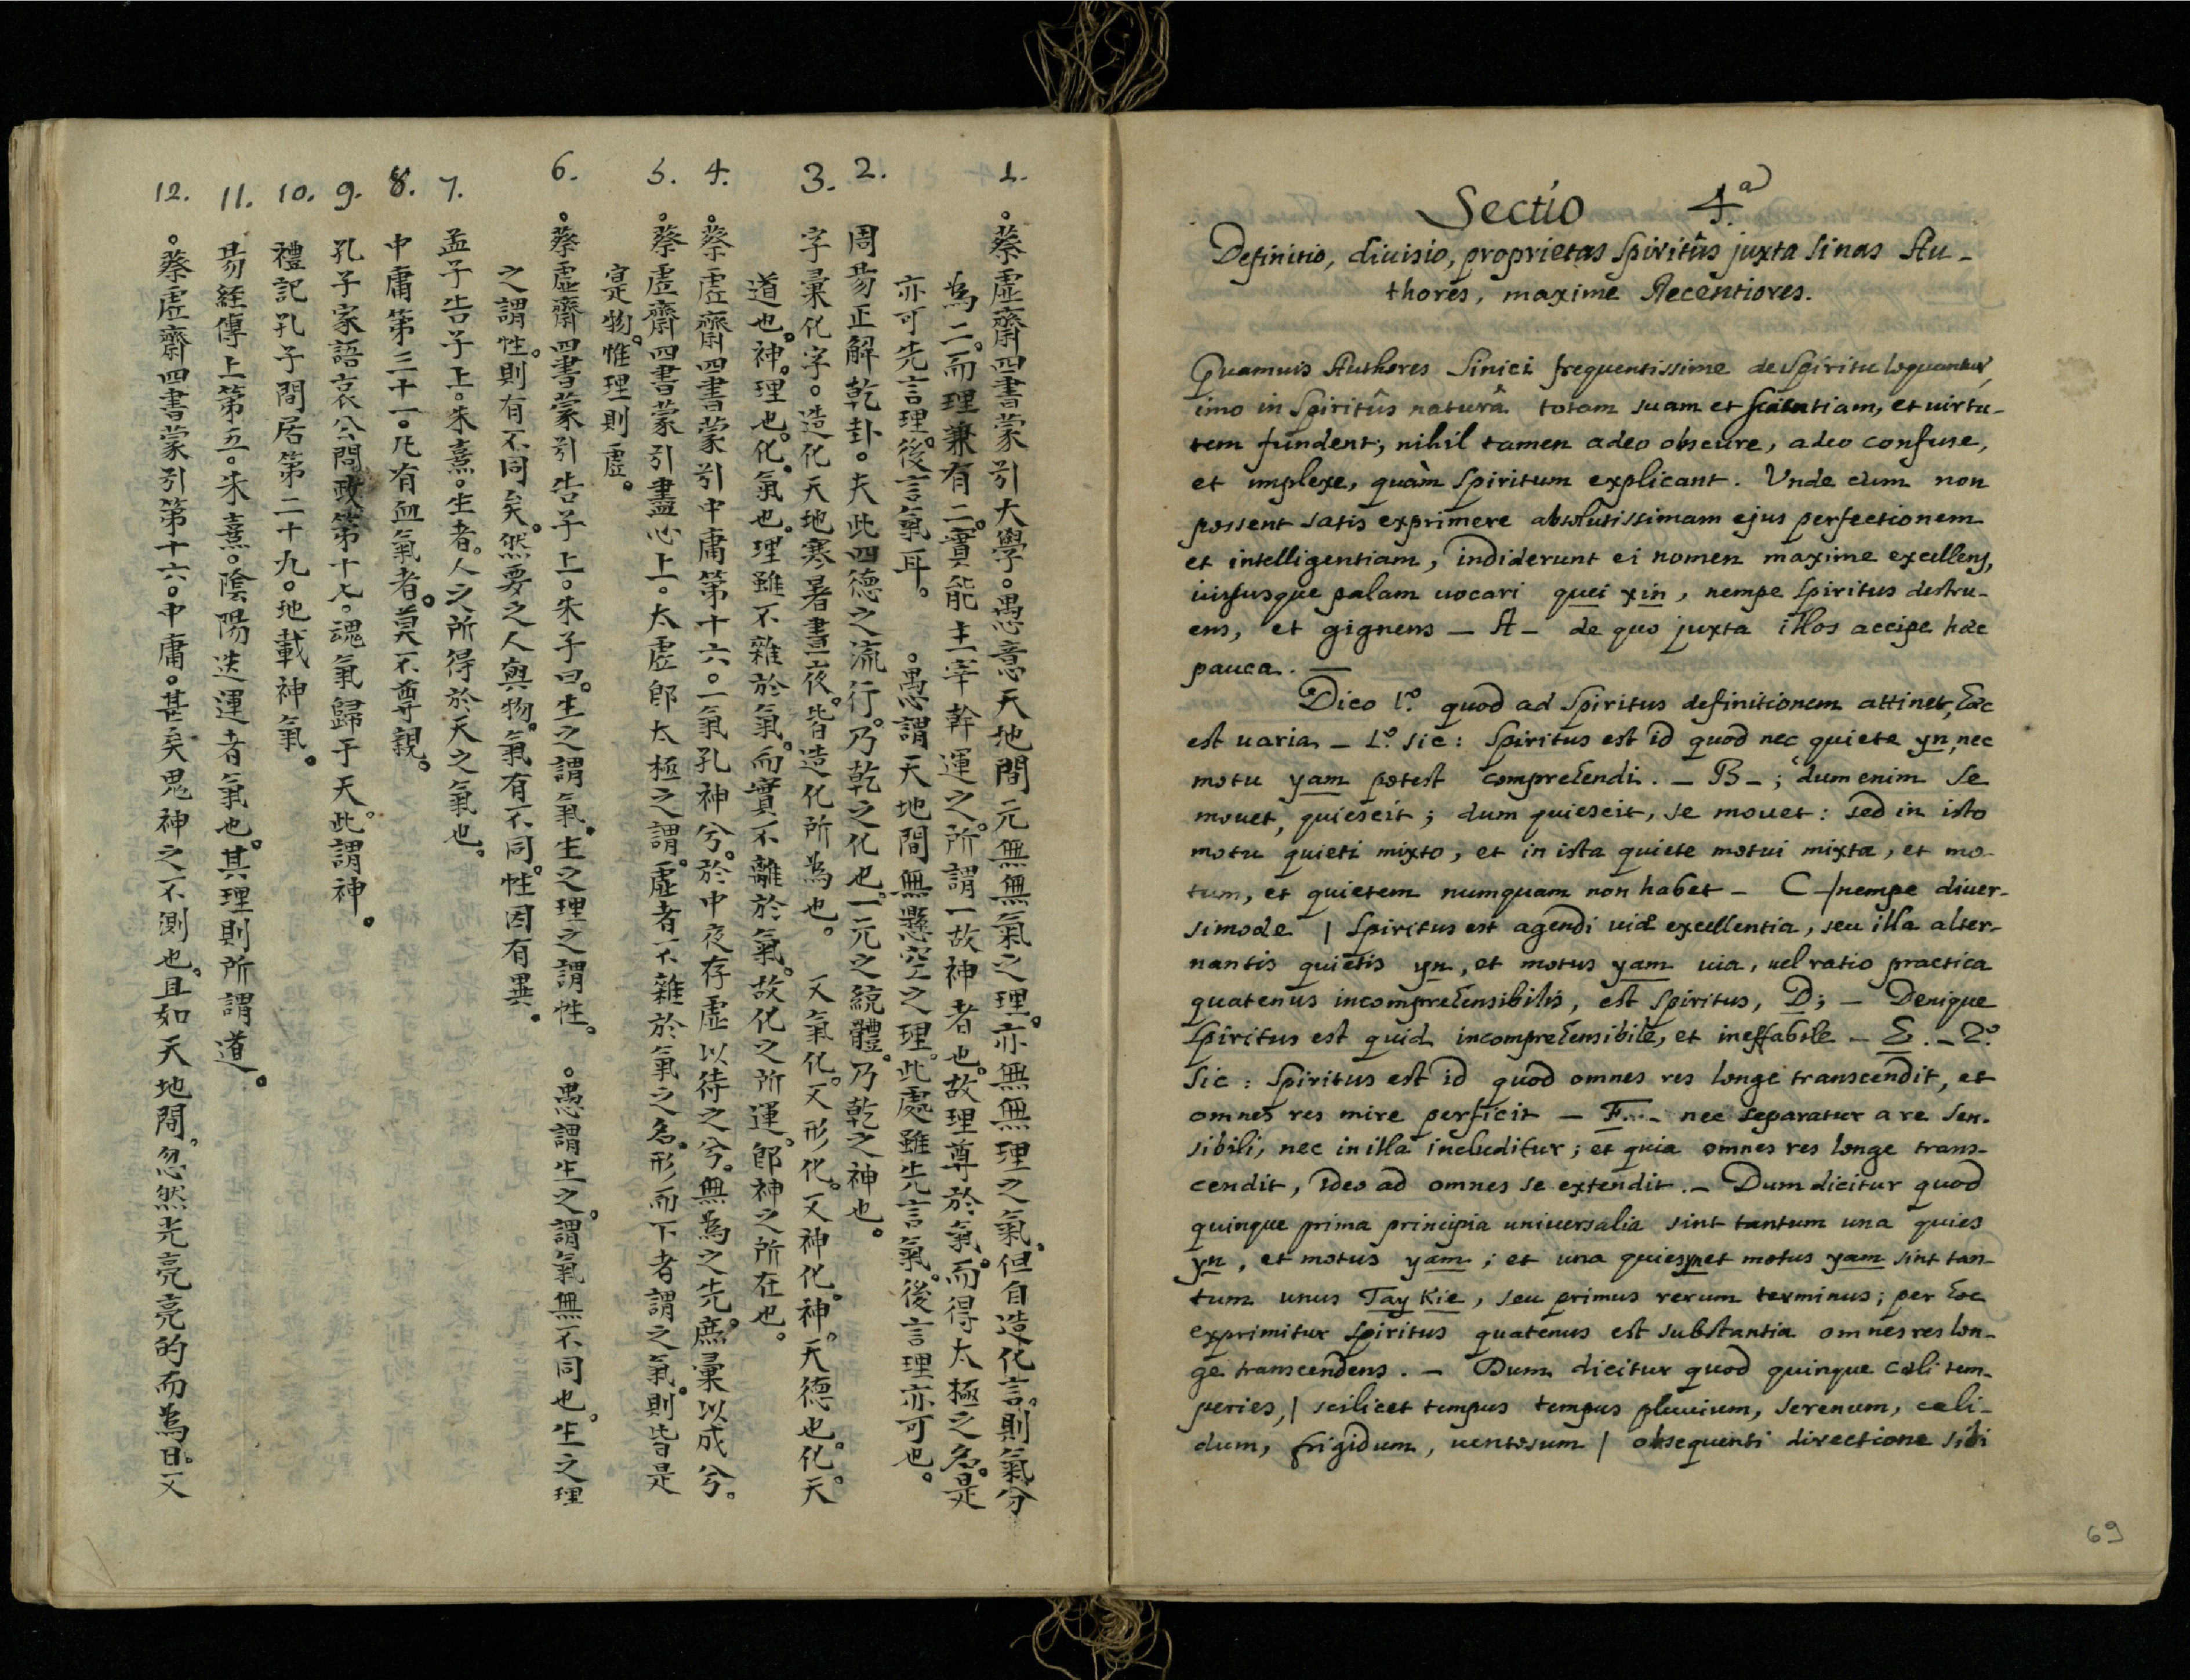 1.
。蔡虛齋四書蒙引大學。愚意天地間元無無氣之理。亦無無理之氣。但自造化言。則氣分
為二。而理兼有二。實能主宰幹運之。所謂一故神者也。故理尊於氣。而得太極之名。是
亦可先言理。後言氣耳。 。愚謂天地間無懸空之理。此處雖先言氣。後言理亦可也。
2.
周易正解乾卦。夫此四德之流行。乃乾之化也。一元之統體。乃乾之神也。
3.
字彙化字。造化天地寒暑晝夜。皆造化所為也。 又氣化。又形化。又神化。神。天德也。化。天
道也。神。理也。化。氣也。理雖不雜於氣。而實不離於氣。故化之所運。即神之所在也。
4.
。蔡虛齋四書蒙引中庸第十六。一氣孔神兮。於中夜存虛以待之兮。無為之先。庶彙以成兮。
5.
。蔡虛齋四書蒙引盡心上。太虛即太極之謂。虛者不雜於氣之名。形而下者謂之氣。則皆是
寔物。惟理則虛。
6.
。蔡虛齋四書蒙引告子上。朱子曰。生之謂氣。生之理之謂性。 。愚謂生之謂氣無不同也。生之理
之謂性。則有不同矣。然要之人與物。氣有不同。性固有異。
7.
孟子告子上。朱熹。生者。人之所得於天之氣也。
8.
中庸第三十一。凡有血氣者。莫不尊親。
9.
孔子家語哀公問政第十七。魂氣歸于天。此謂神。
10.
禮記孔子閒居第二十九。地載神氣。
11.
易經傳上第五。朱熹。陰陽迭運者氣也。其理則所謂道。
12.
。蔡虛齋四書蒙引第十六。中庸。甚矣鬼神之不測也。且如天地間。忽然光亮亮的而為日。又
Sectio 4.a
Definitio, diuisio, proprietas Spiritûs juxta Sinas Au-
thores, maxime Recentiores.
Quamuis Authores Sinici frequentissime de Spiritu loquantur,
imo in Spiritûs naturâ totam suam et scientiam, et uirtu-
tem fundent; nihil tamen adeo obscure, adeo confuse,
et implexe, quàm Spiritum explicant. Vnde cùm non
possent satis exprimere absolutissimam ejus perfectionem
et intelligentiam, indiderunt ei nomen maxime excellens,
iussusque palam uocari quei xin, nempe Spiritus destru-
ens, et gignens – A – de quo juxta illos accipe hæc
pauca. —
Dico 1.º quod ad Spiritus definitionem attinet, hæc
est uaria – 1.º sic: Spiritus est id quod nec quiete yn, nec
motu yam potest comprehendi. – B –; dum enim se
mouet, quiescit; dum quiescit, se mouet: sed in isto
motu quieti mixto, et in ista quiete motui mixta, et mo-
tum, et quietem numquam non habet – C – / nempe diuer-
simode / Spiritus est agendi uiæ excellentia, seu illa alter-
nantis quietis yn, et motus yam uia, uel ratio practica
quatenus incomprehensibilis, est Spiritus, D; – Denique
Spiritus est quid incomprehensibile, et ineffabile – E. – 2.º
Sic: Spiritus est id quod omnes res longè transcendit, et
omnes res mire perficit – F... – nec separatur a re sen-
sibili, nec in illa includitur; et quia omnes res longe trans-
cendit, ideo ad omnes se extendit. – Dum dicitur quod
quinque prima principia uniuersalia sint tantum una quies
yn, et motus yam; et una quies yn et motus yam sint tan-
tum unus Tay Kie, seu primus rerum terminus; per hoc
exprimitur Spiritus quatenus est substantia omnes res lon-
ge transcendens. – Dum dicitur quod quinque cæli tem-
peries, / scilicet tempus tempus pluuium, serenum, cali-
dum, frigidum, uentosum / obsequenti directione sibi
69